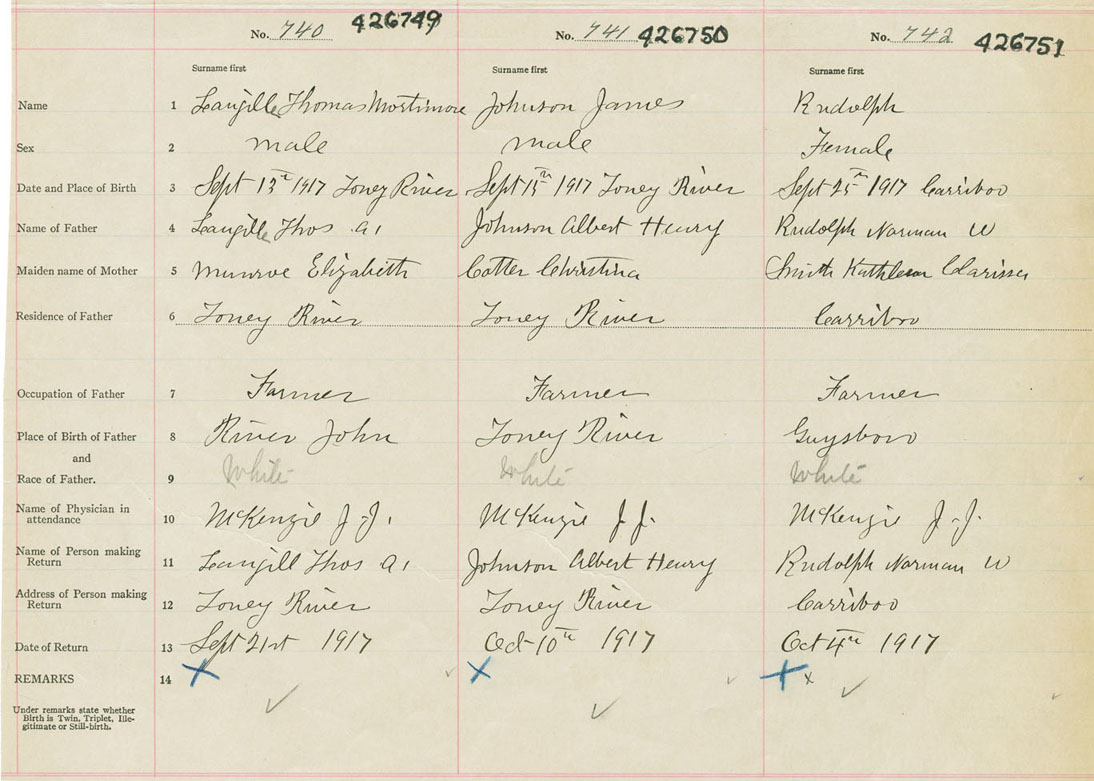 No. 740 426749 No. 741 426750 No. 742 426751
Surname first Surname first Surname first
Name 1 Langille Thomas Mortimore Johnson James Rudolph
Sex 2 male male Female
Date and Place of Birth 3 Sept 13th 1917 Toney River Sept 15th 1917 Toney River Sept 25th 1917 Carriboo
Name of Father 4 Langille Thos A. Johnson Albert Henry Rudolph Norman W
Maiden name of Mother 5 Munroe Elizabeth Cotter Christina Smith Kathleen Clarissa
Residence of Father 6 Toney River Toney River Carriboo
Occupation of Father 7 Farmer Farmer Farmer
Place of Birth of Father 8 River John Toney River Guysboro
and
Race of Father. 9 White White White
Name of Physician in
attendance 10 McKenzie J. J. McKenzie J. J. McKenzie J. J.
Name of Person making
Return 11 Langill Thos A. Johnson Albert Henry Rudolph Norman W
Address of Person making
Return 12 Toney River Toney River Carriboo
Date of Return 13 Sept 21st 1917 Oct 10th 1917 Oct 4th 1917
REMARKS 14 x x x x
Under remarks state whether
Birth is Twin, Triplet, Ille-
gitimate or Still-birth.